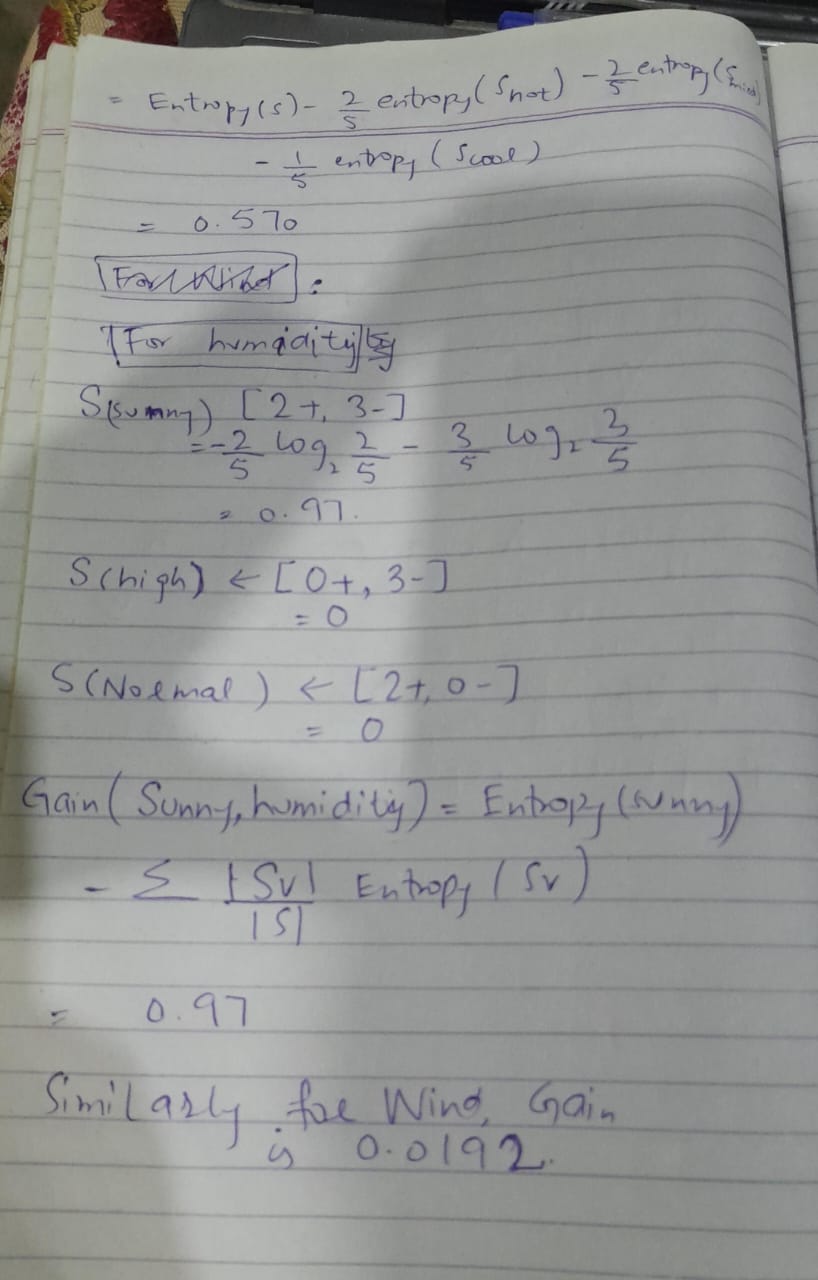 = Entropy(S) - 2/5 entropy(Shot) - 2/5 entropy(Smild)
- 1/5 entropy (Scool)
= 0.570
:
For humidity
S(sunny) [2+, 3-]
= -2/5 log₂ 2/5 - 3/5 log₂ 3/5
= 0.97.
S(high) ← [0+, 3-]
= 0
S(Normal) ← [2+, 0-]
= 0
Gain(Sunny, humidity) = Entropy(sunny)
- Σ |Sv|/|S| Entropy(Sv)
= 0.97
Similarly for Wind, Gain
is 0.0192.